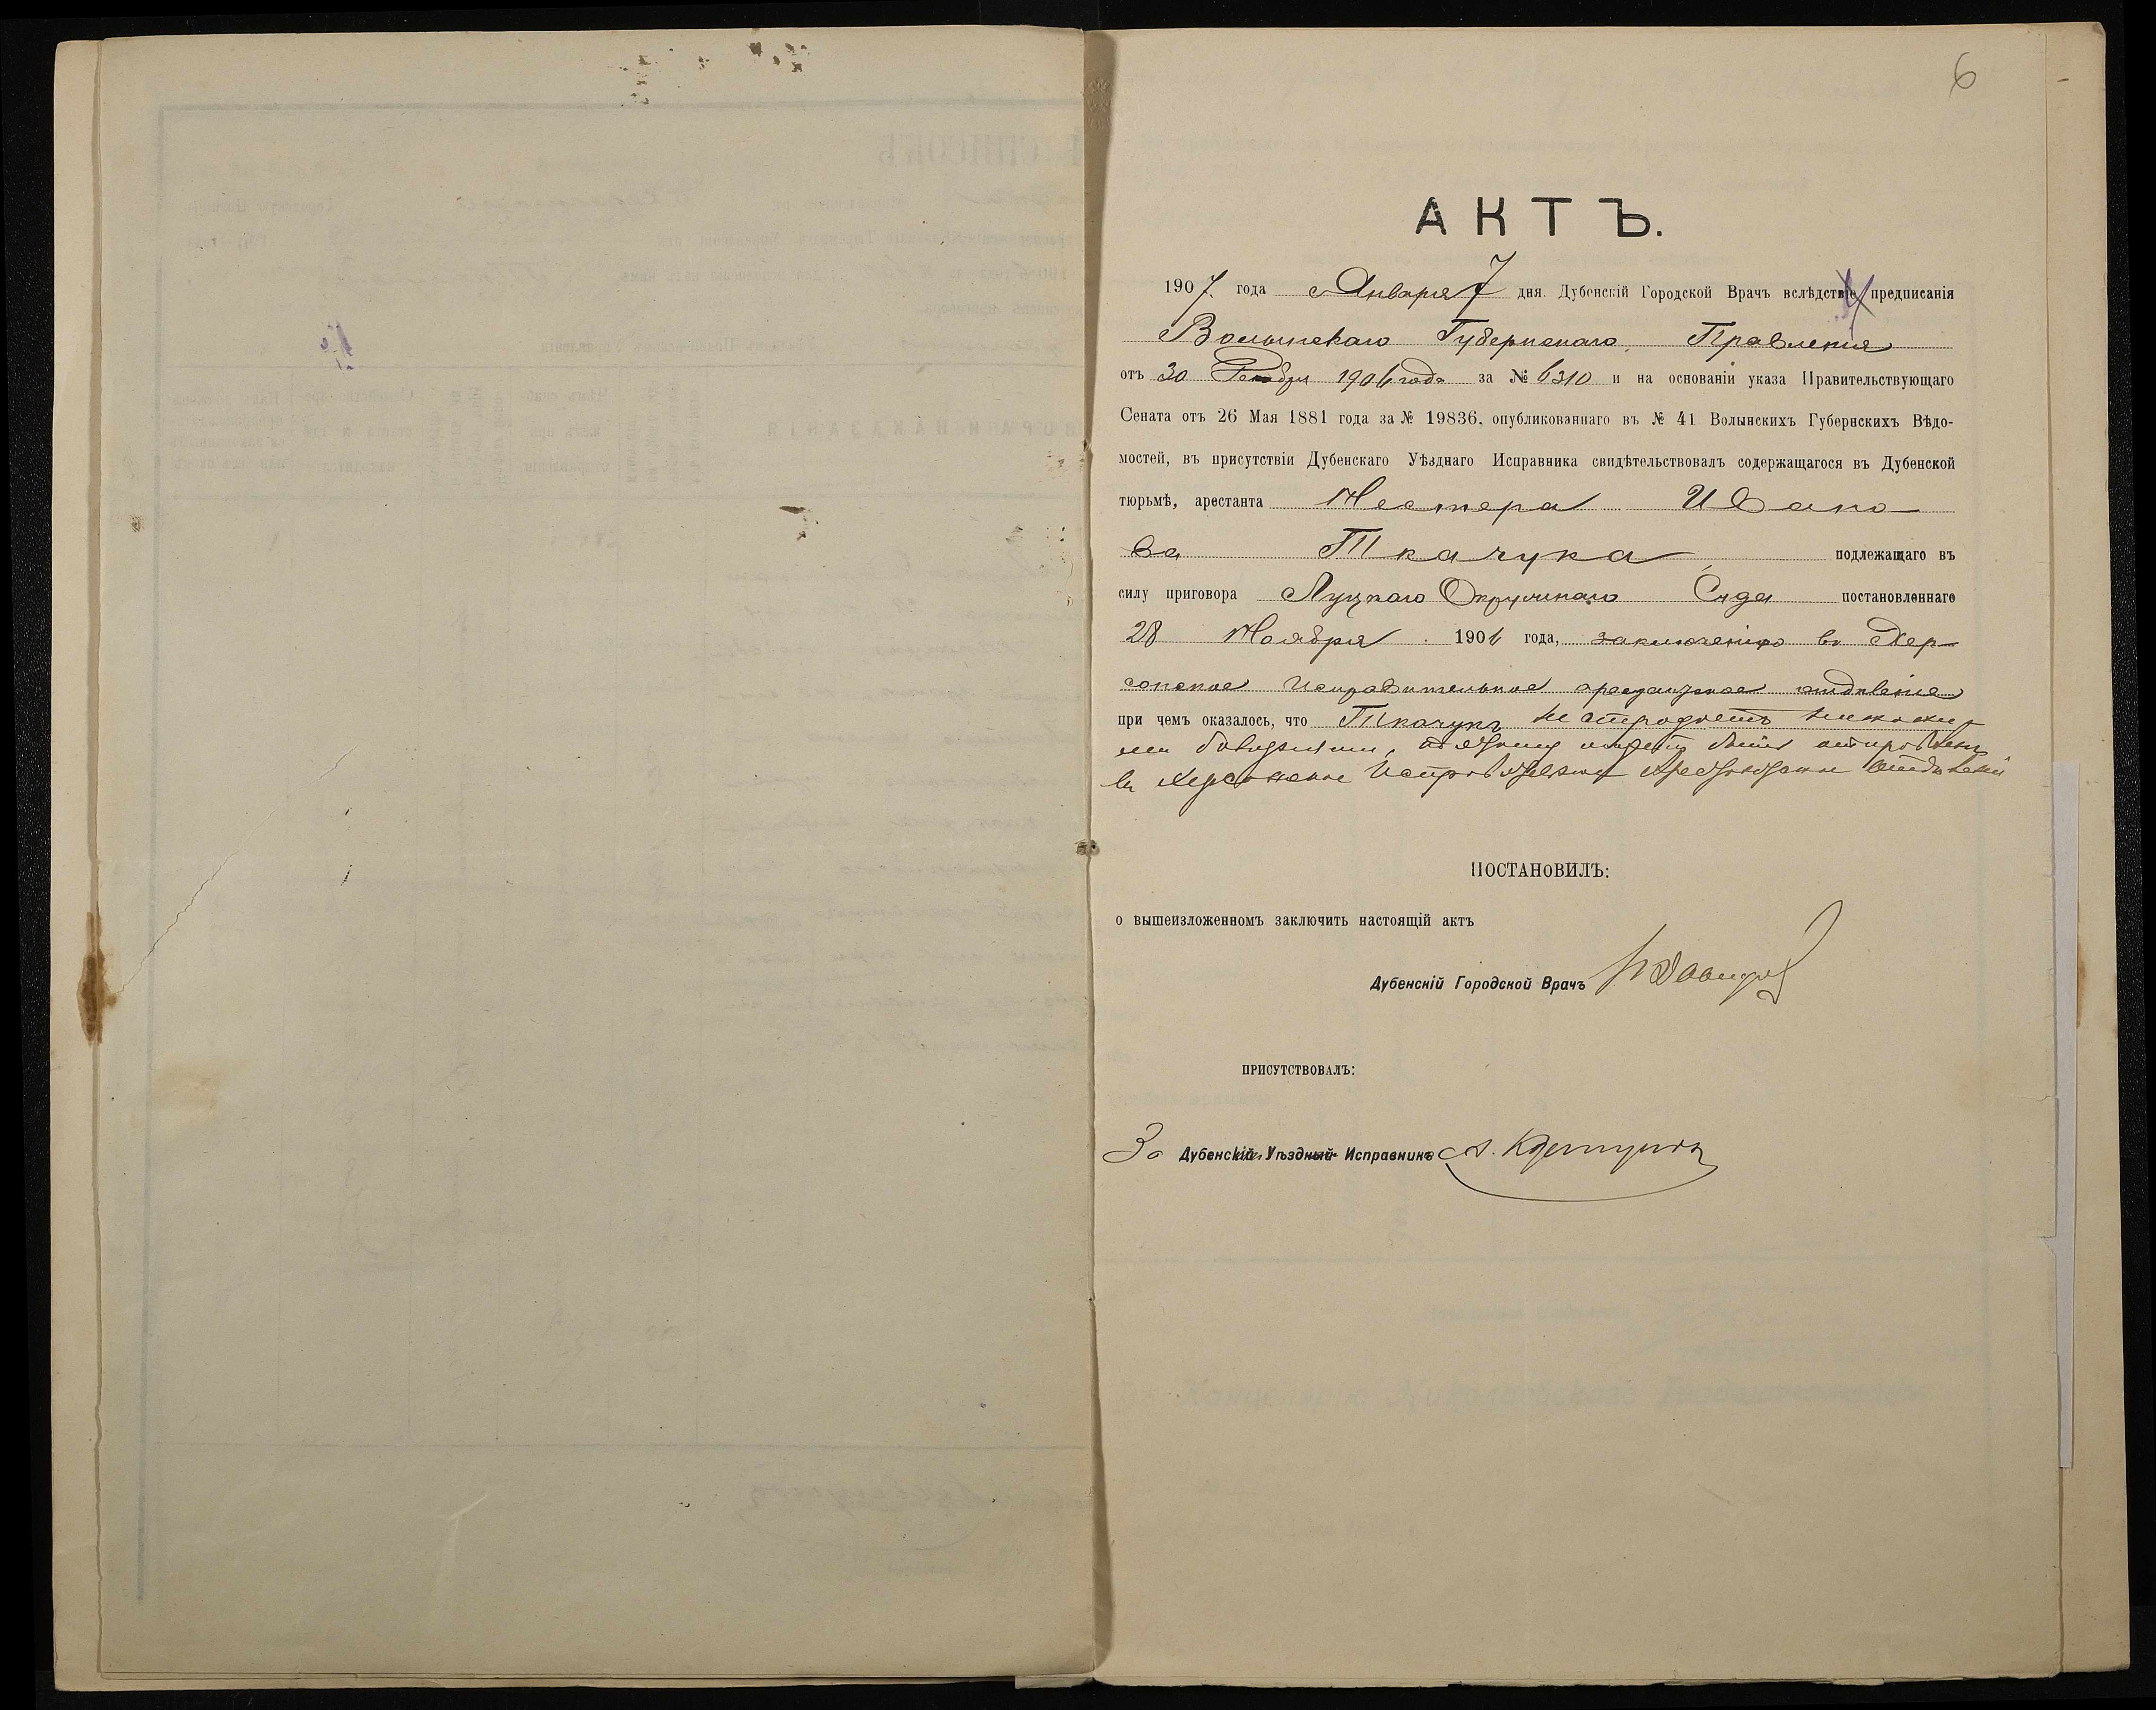 6
АКТЪ.
1907 года Января 7 дня. Дубенскій Городской Врачъ вслѣдствіе предписанія
Волынскаго Губернскаго Правленія
отъ 30 Декабря 1906 года за № 6310 и на основаніи указа Правительствующаго
Сената отъ 26 Мая 1881 года за № 19836, опубликованнаго въ № 41 Волынскихъ Губернскихъ Вѣдо-
мостей, въ присутствіи Дубенскаго Уѣзднаго Исправника свидѣтельствовалъ содержащагося въ Дубенской
тюрьмѣ, арестанта Нестера Ивано-
ва Ткачука подлежащаго въ
силу приговора Луцкаго Окружнаго Суда постановленнаго
28 Ноября 1906 года, заключенію въ Хер-
сонское Исправительное арестантское отдѣленіе
при чемъ оказалось, что Ткачукъ не страдаетъ никаки-
ми болѣзнями, поэтому можетъ быть отправленъ
въ Херсонское Исправительное Арестантское Отдѣленіе
ПОСТАНОВИЛЪ:
о вышеизложенномъ заключить настоящій актъ
Дубенскій Городской Врачъ
ПРИСУТСТВОВАЛЪ:
За Дубенскій Уѣздный Исправникъ